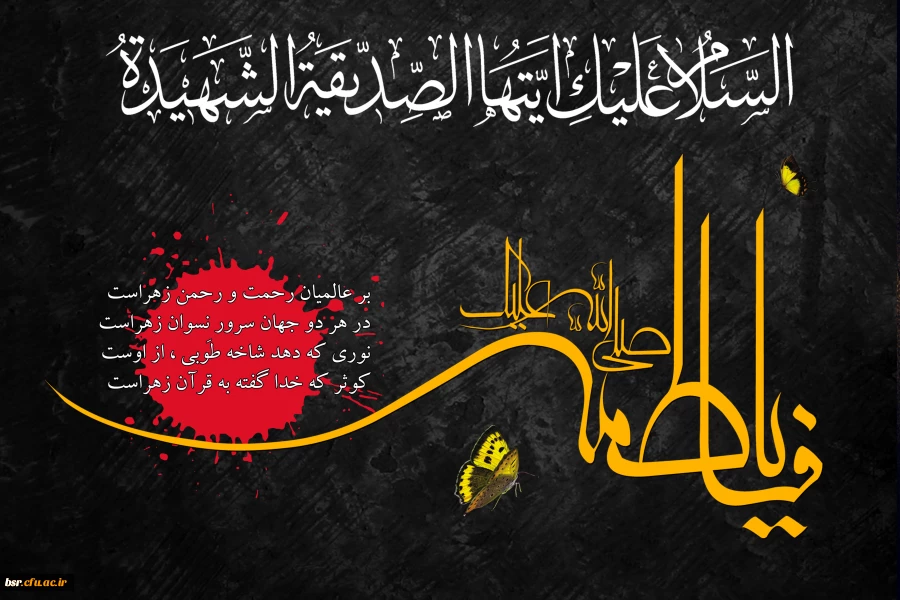 السَّلامُ عَلَيْكِ اَيَّتُهَا الصِّدّيقَةُ الشَّهيدَةُ
يا فاطمه
صلی الله علیک
بر عالمیان رحمت و رحمن زهراست
در هر دو جهان سرور نسوان زهراست
نوری که دهد شاخه طَوبی ، از اوست
کوثر که خدا گفته به قرآن زهراست
bsr.cfu.ac.ir